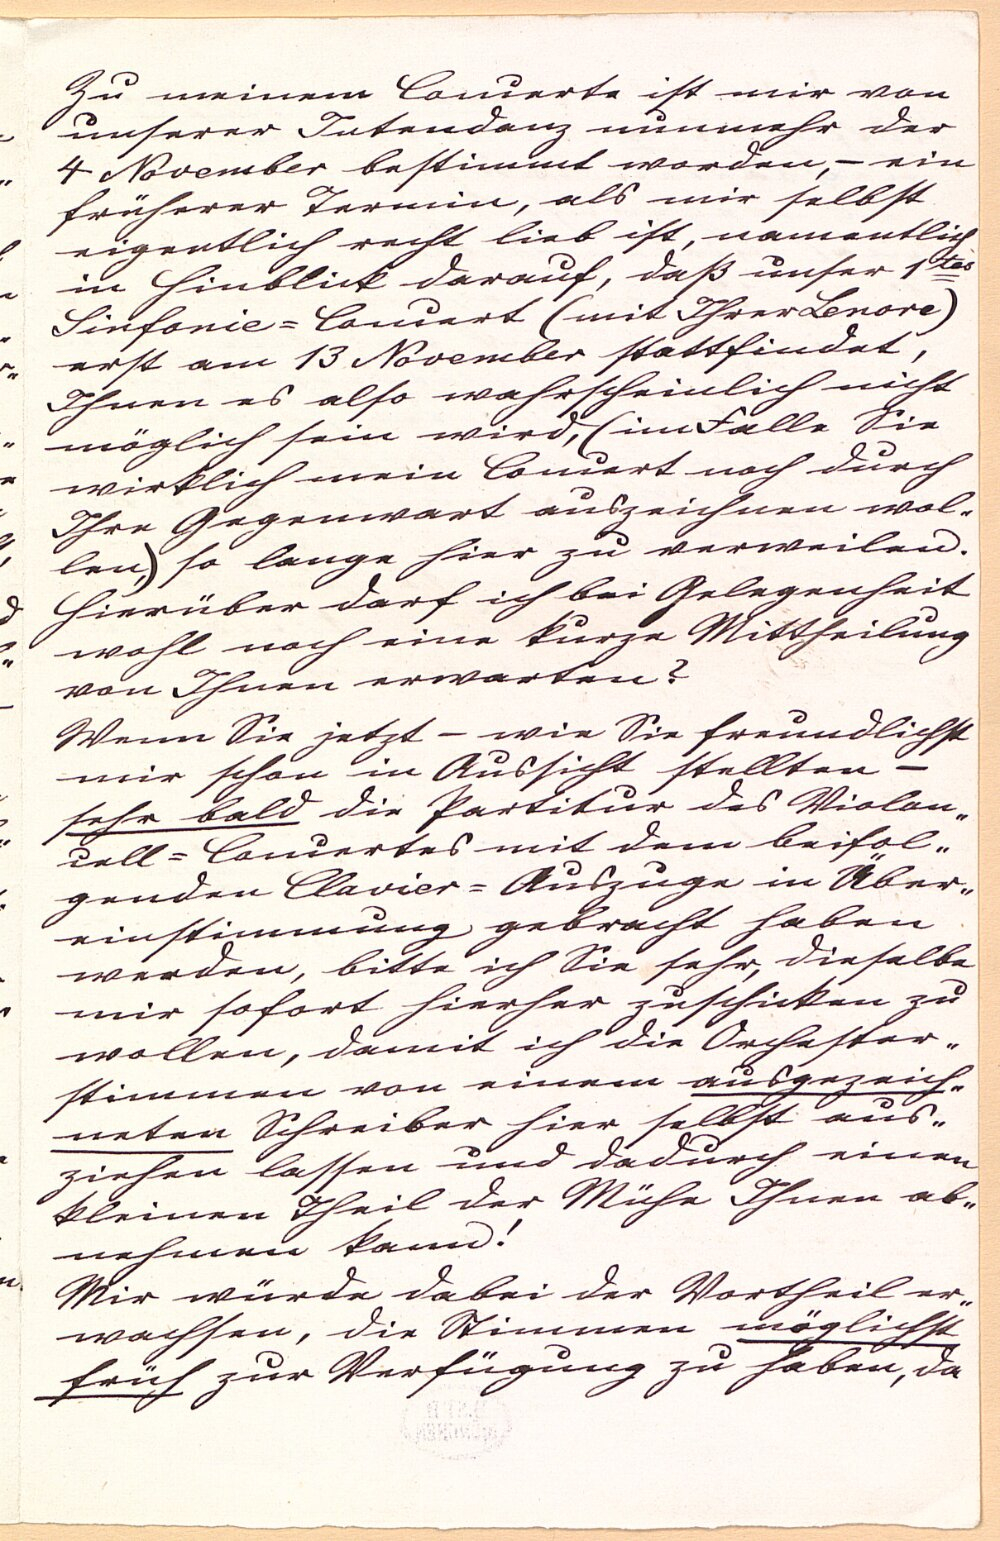 Zu meinem Concerte ist mir von
unserer Intendanz nunmehr der
4 November bestimmt worden, – ein
früherer Termin, als mir selbst
eigentlich recht lieb ist, namentlich
in Hinblick darauf, daß unser 1tes
Sinfonie=Concert (mit Ihrer Lenore)
erst am 13 November stattfindet,
Ihnen es also wahrscheinlich nicht
möglich sein wird, (im Falle Sie
wirklich mein Concert noch durch
Ihre Gegenwart auszeichnen wol-
len,) so lange hier zu verweilen.
Hierüber darf ich bei Gelegenheit
wohl noch eine kurze Mittheilung
von Ihnen erwarten?
Wenn Sie jetzt – wie Sie freundlichst
mir schon in Aussicht stellten –
sehr bald die Partitur des Violon-
cell=Concertes mit dem beifol-
genden Clavier=Auszuge in Über-
einstimmung gebracht haben
werden, bitte ich Sie sehr, dieselbe
mir sofort hierher zuschicken zu
wollen, damit ich die Orchester-
stimmen von einem ausgezeich-
neten Schreiber hier selbst aus-
ziehen lassen und dadurch einen
kleinen Theil der Mühe Ihnen ab-
nehmen kann!
Mir würde dabei der Vortheil er-
wachsen, die Stimmen möglichst
früh zur Verfügung zu haben, da